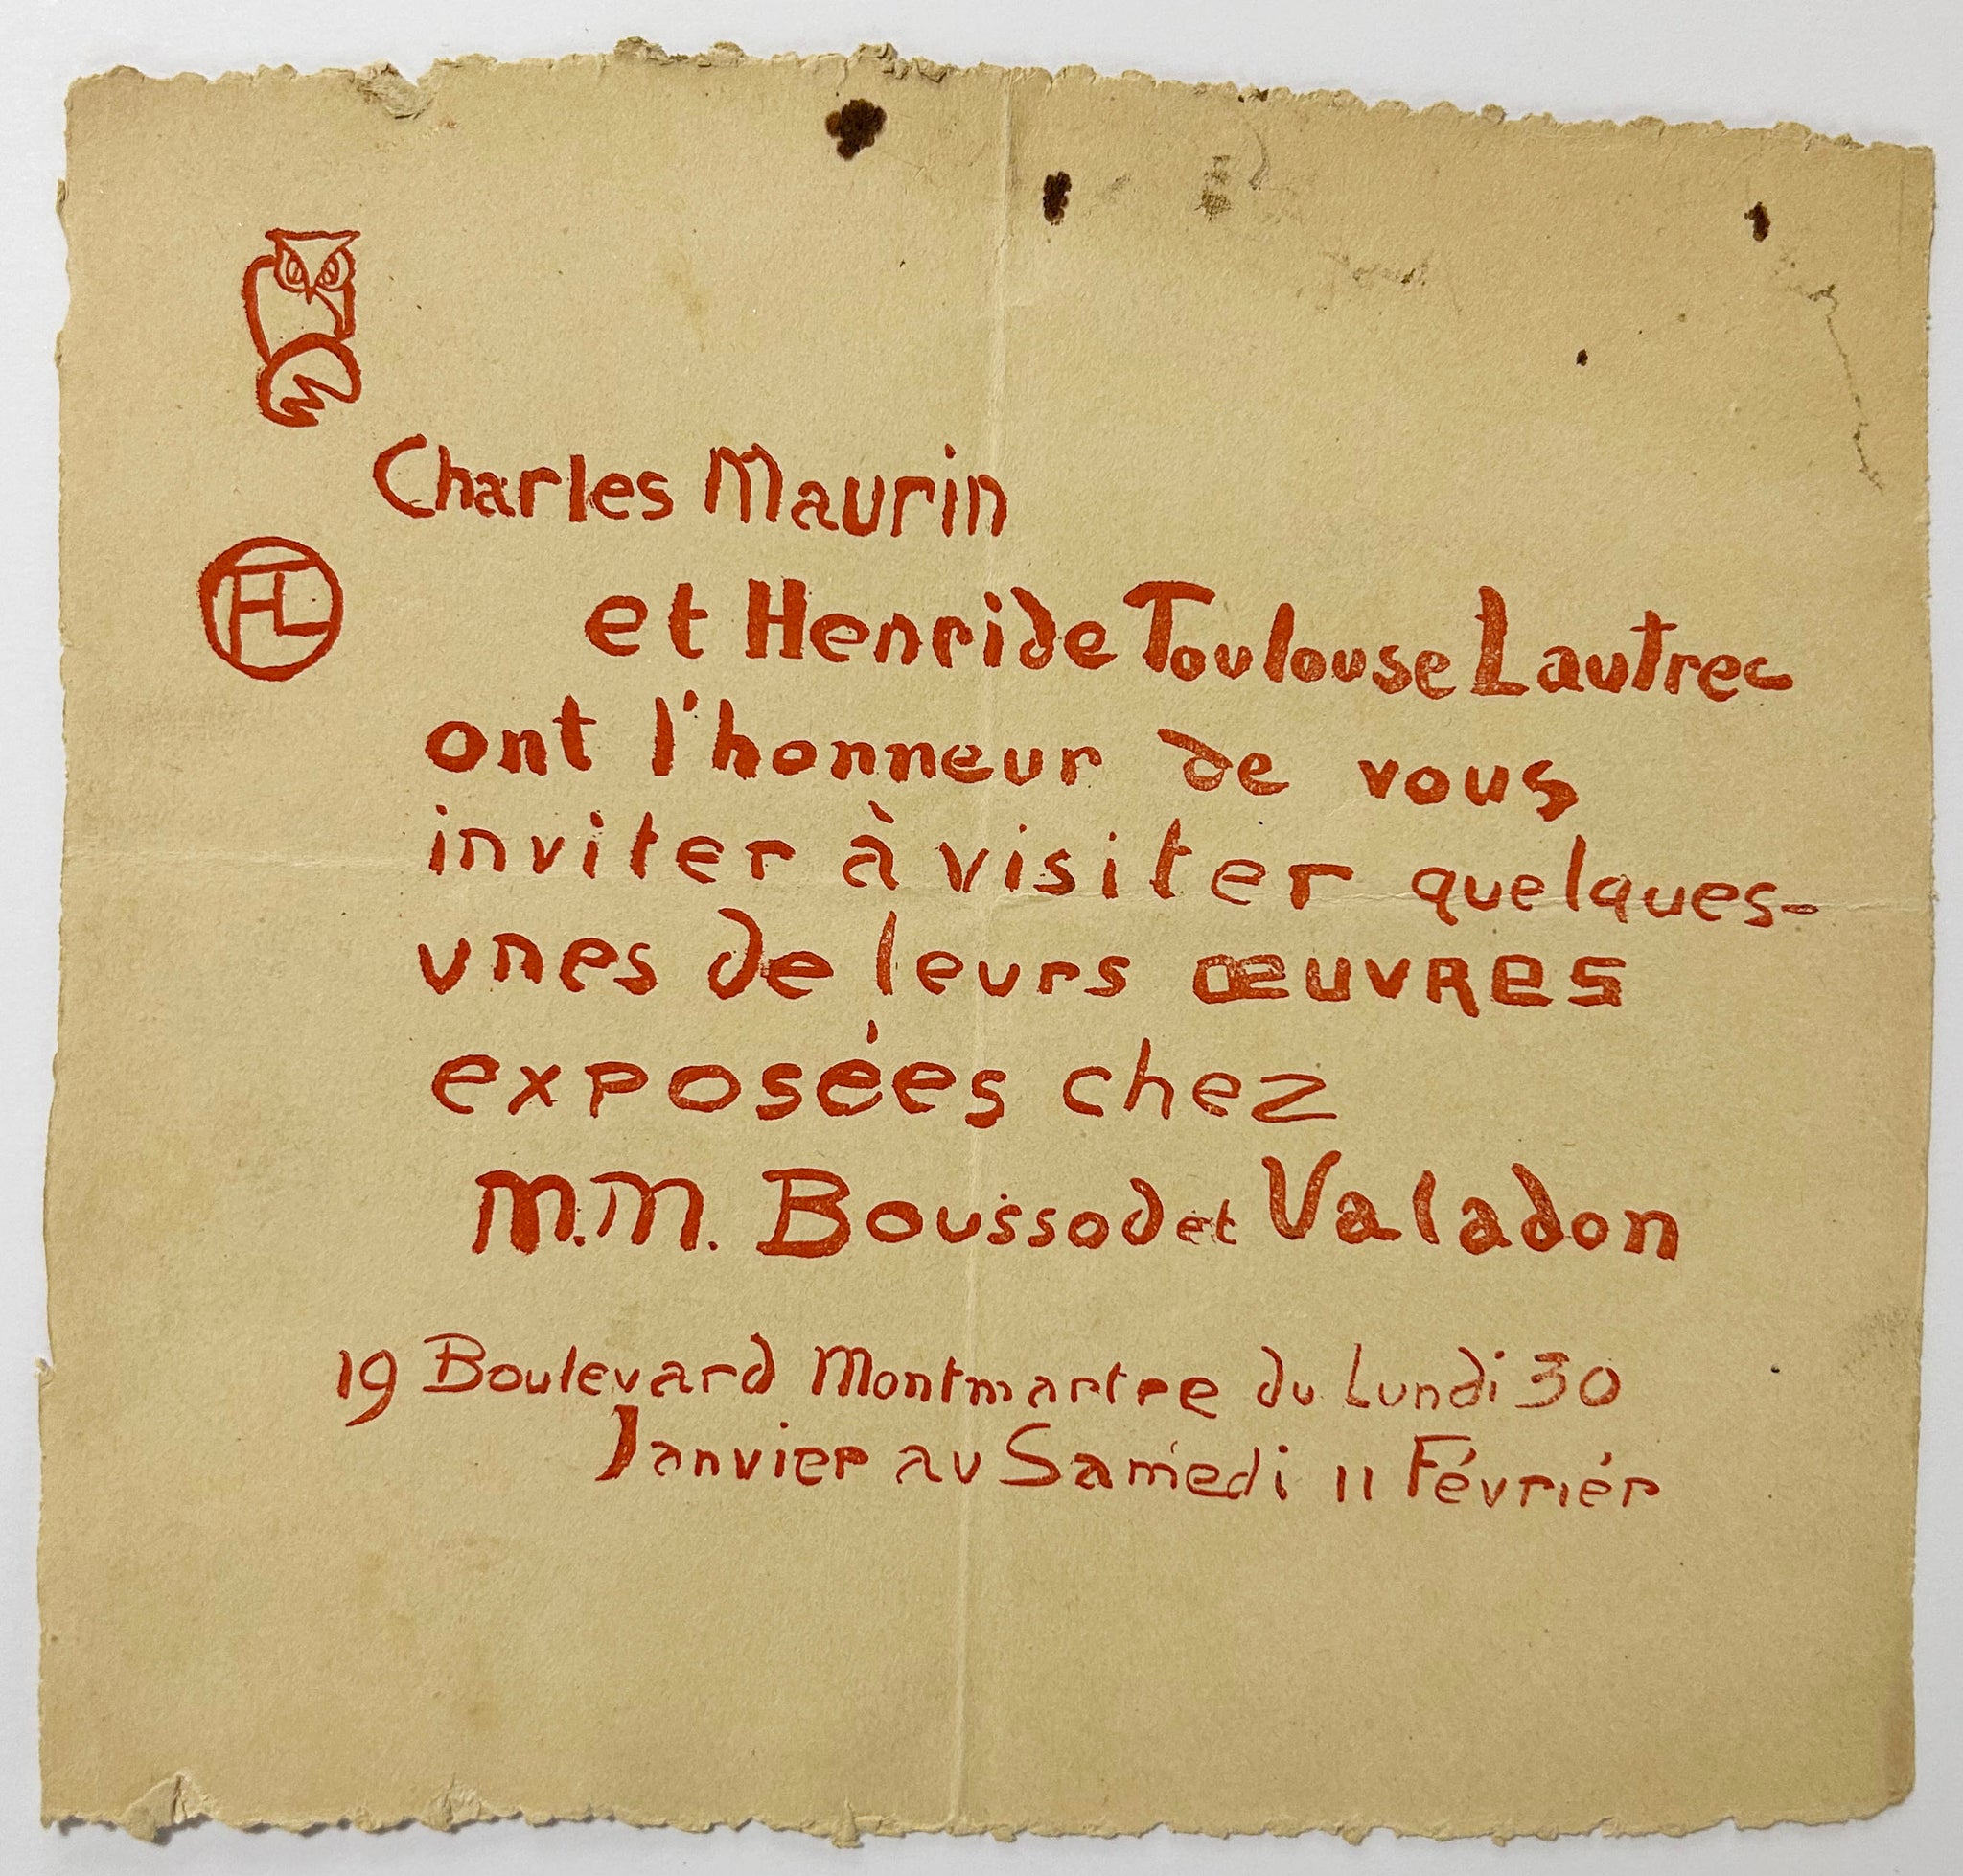 Charles Maurin
HTL
et Henri de Toulouse Lautrec
ont l'honneur de vous
inviter à visiter quelques-
unes de leurs œuvres
exposées chez
M.M. Boussod et Valadon
19 Boulevard Montmartre du Lundi 30
Janvier au Samedi 11 Février